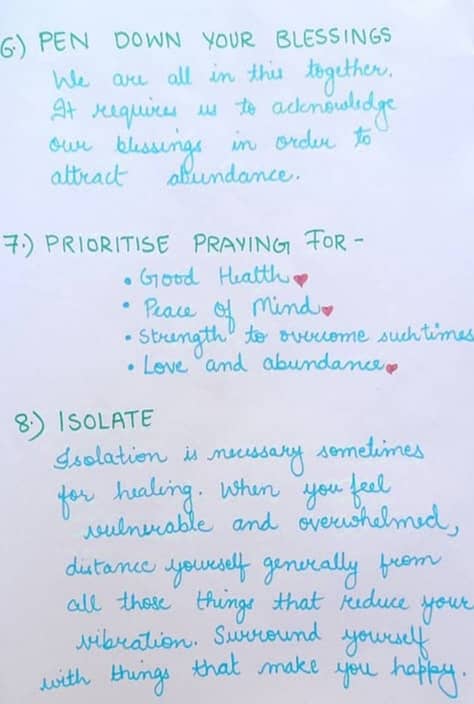 6.) PEN DOWN YOUR BLESSINGS
We are all in this together.
It requires us to acknowledge
our blessings in order to
attract abundance.
7.) PRIORITISE PRAYING FOR -
• Good Health
• Peace of Mind
• Strength to overcome such times
• Love and abundance
8.) ISOLATE
Isolation is necessary sometimes
for healing. When you feel
vulnerable and overwhelmed,
distance yourself generally from
all those things that reduce your
vibration. Surround yourself
with things that make you happy.